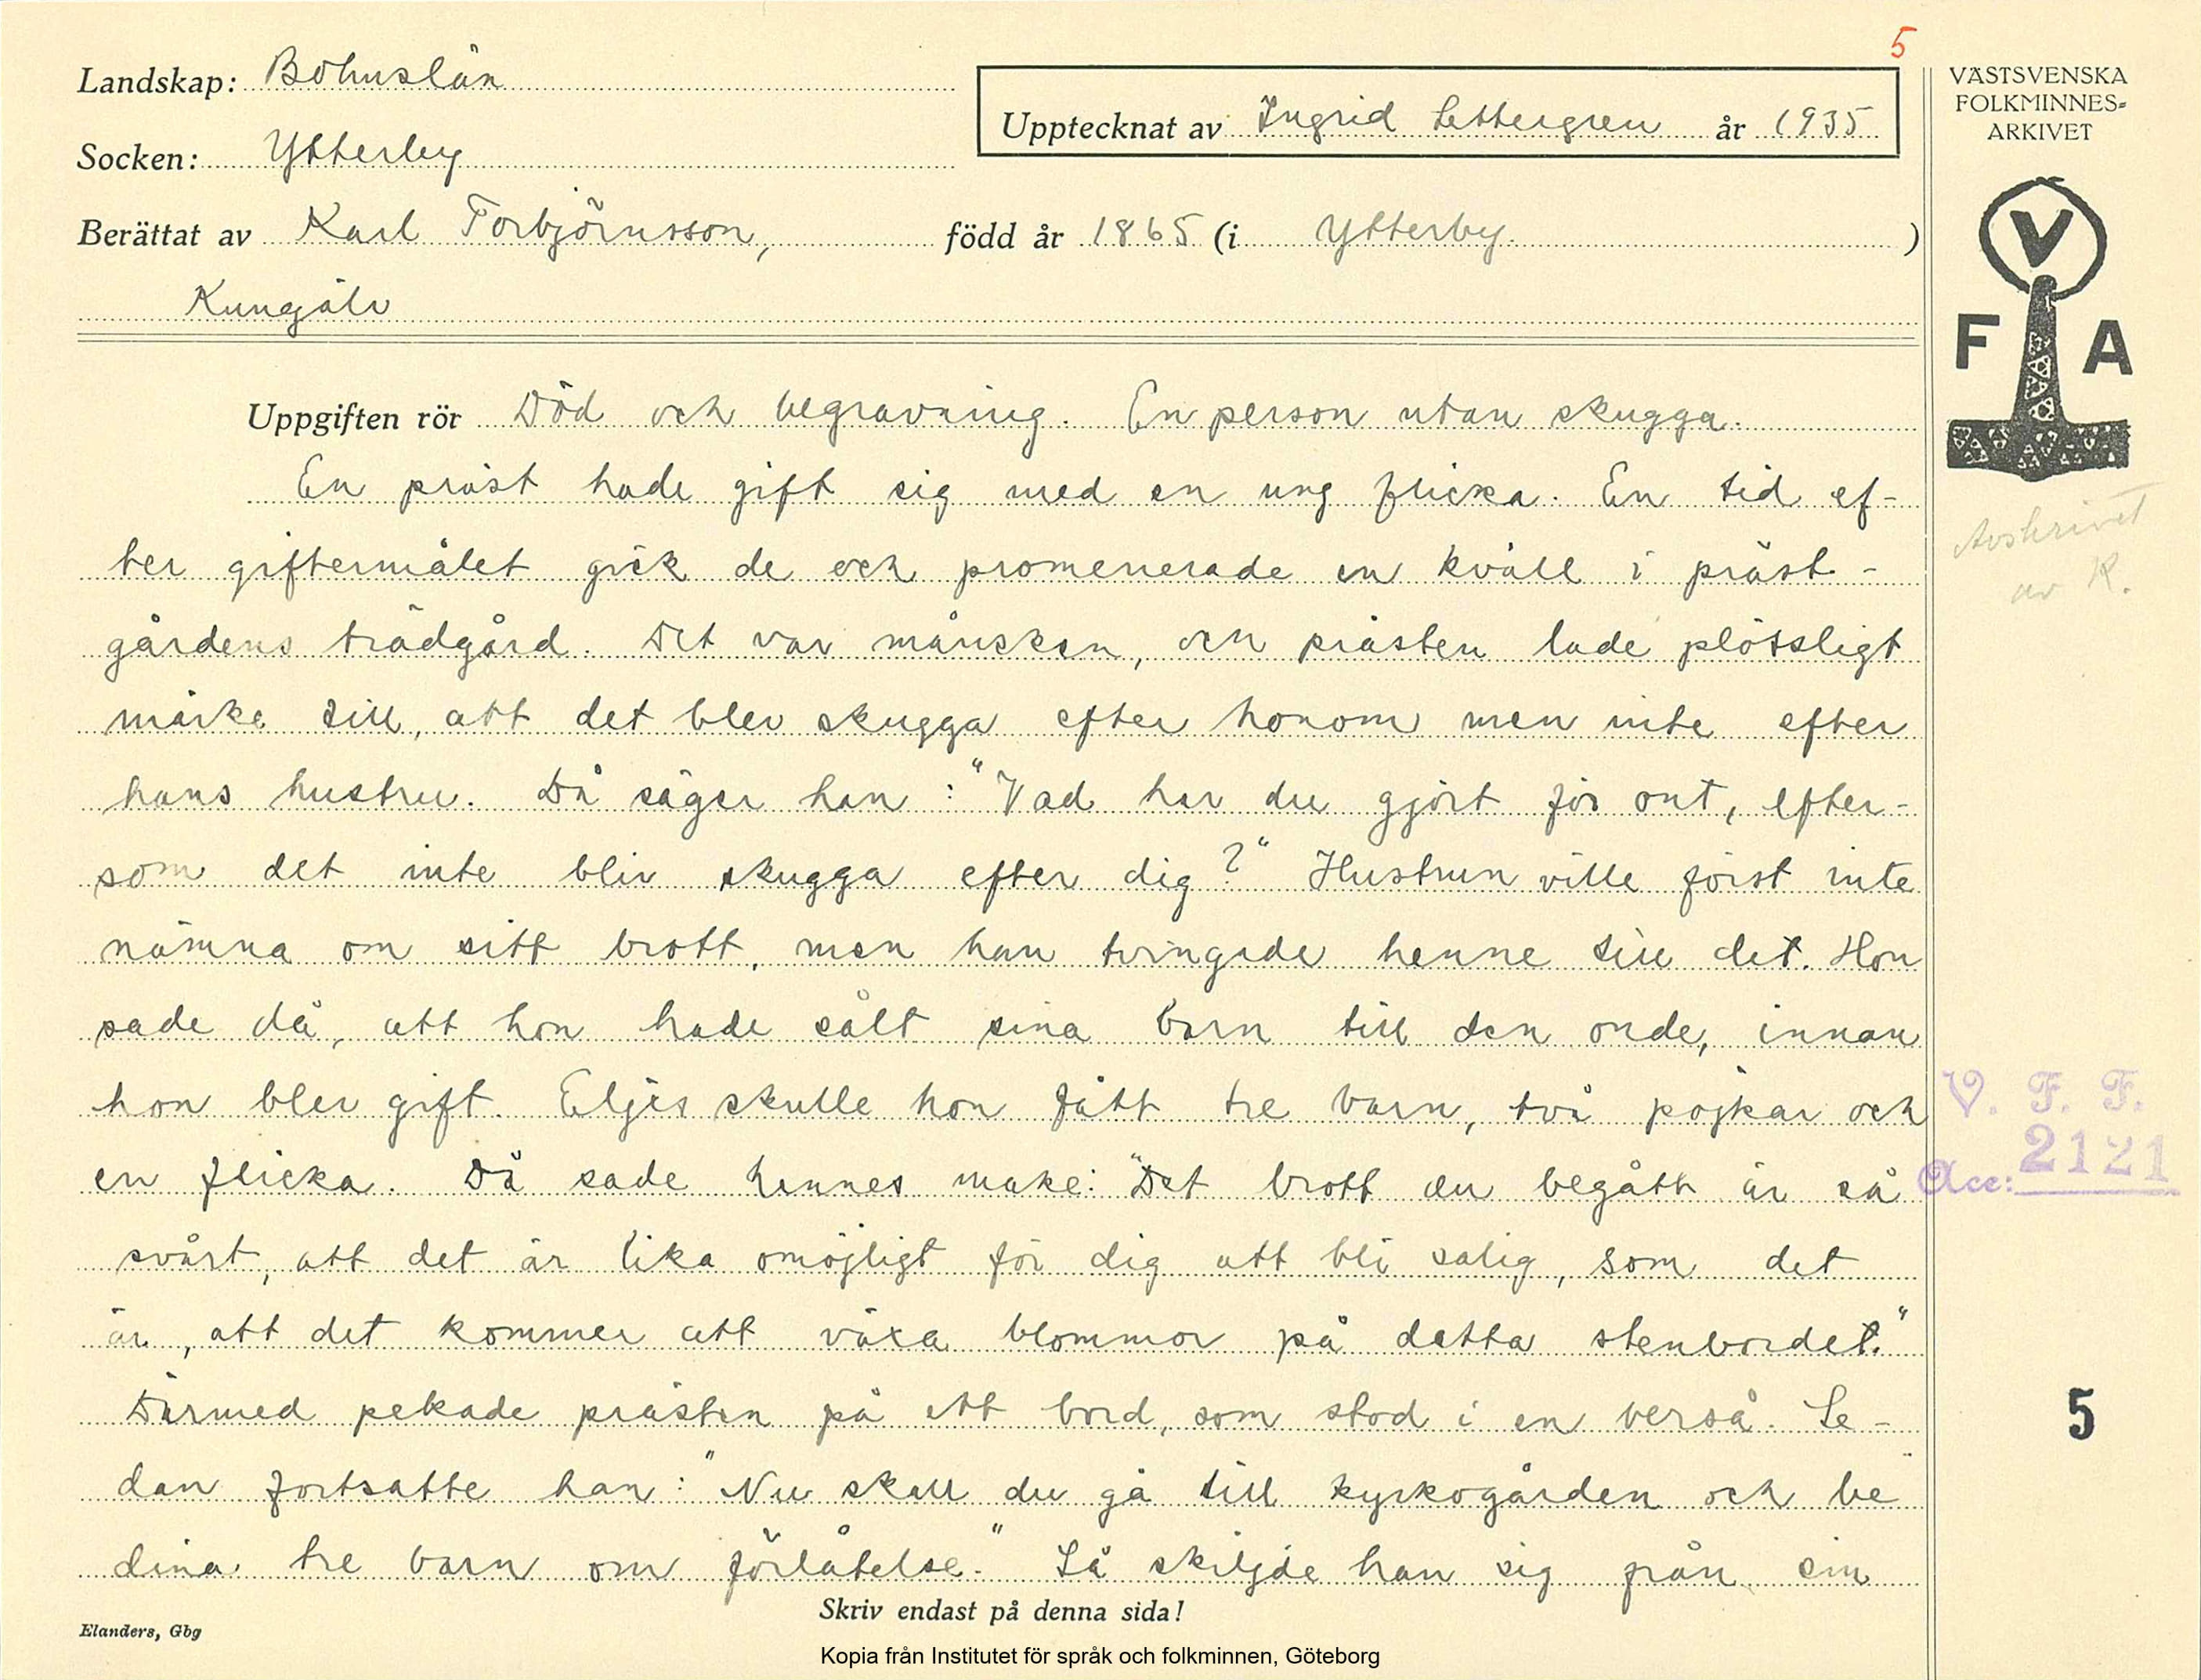 5
Landskap: Bohuslän
Upptecknat av Ingrid Settergren år 1935
Socken: Ytterby
Berättat av Karl Torbjörnsson, född år 1865 (i Ytterby )
Kungälv
Uppgiften rör Död och begravning. En person utan skugga.
En präst hade gift sig med en ung flicka. En tid ef-
ter giftermålet gick de och promenerade en kväll i präst-
gårdens trädgård. Det var månsken, och prästen lade plötsligt
märke till, att det blev skugga efter honom men inte efter
hans hustru. Då säger han: "Vad har du gjort för ont, efter-
som det inte blir skugga efter dig?" Hustrun ville först inte
nämna om sitt brott, men han tvingade henne till det. Hon
sade då, att hon hade sålt sina barn till den onde, innan
hon blev gift. Eljes skulle hon fått tre barn, två pojkar och
en flicka. Då sade hennes make: "Det brott du begått är så
svårt, att det är lika omöjligt för dig att bli salig, som det
är, att det kommer att växa blommor på detta stenbordet."
Därmed pekade prästen på ett bord, som stod i en berså. Se-
dan fortsatte han: "Nu skall du gå till kyrkogården och be
dina tre barn om förlåtelse." Så skiljde han sig från sin
Skriv endast på denna sida!
Elanders, Gbg
Kopia från Institutet för språk och folkminnen, Göteborg
VÄSTSVENSKA
FOLKMINNES-
ARKIVET
V
F A
Avskrivet
av K.
V. F. F.
Acc: 2121
5